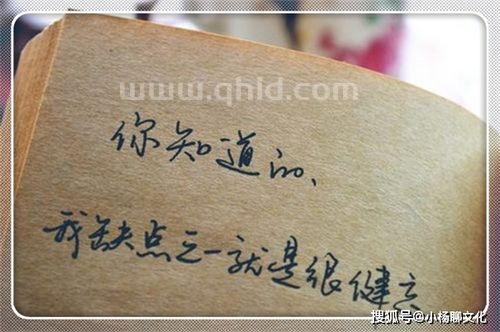 www.qhld.com
你知道的、
我缺点之一就是很健忘
搜狐号@小杨聊文化